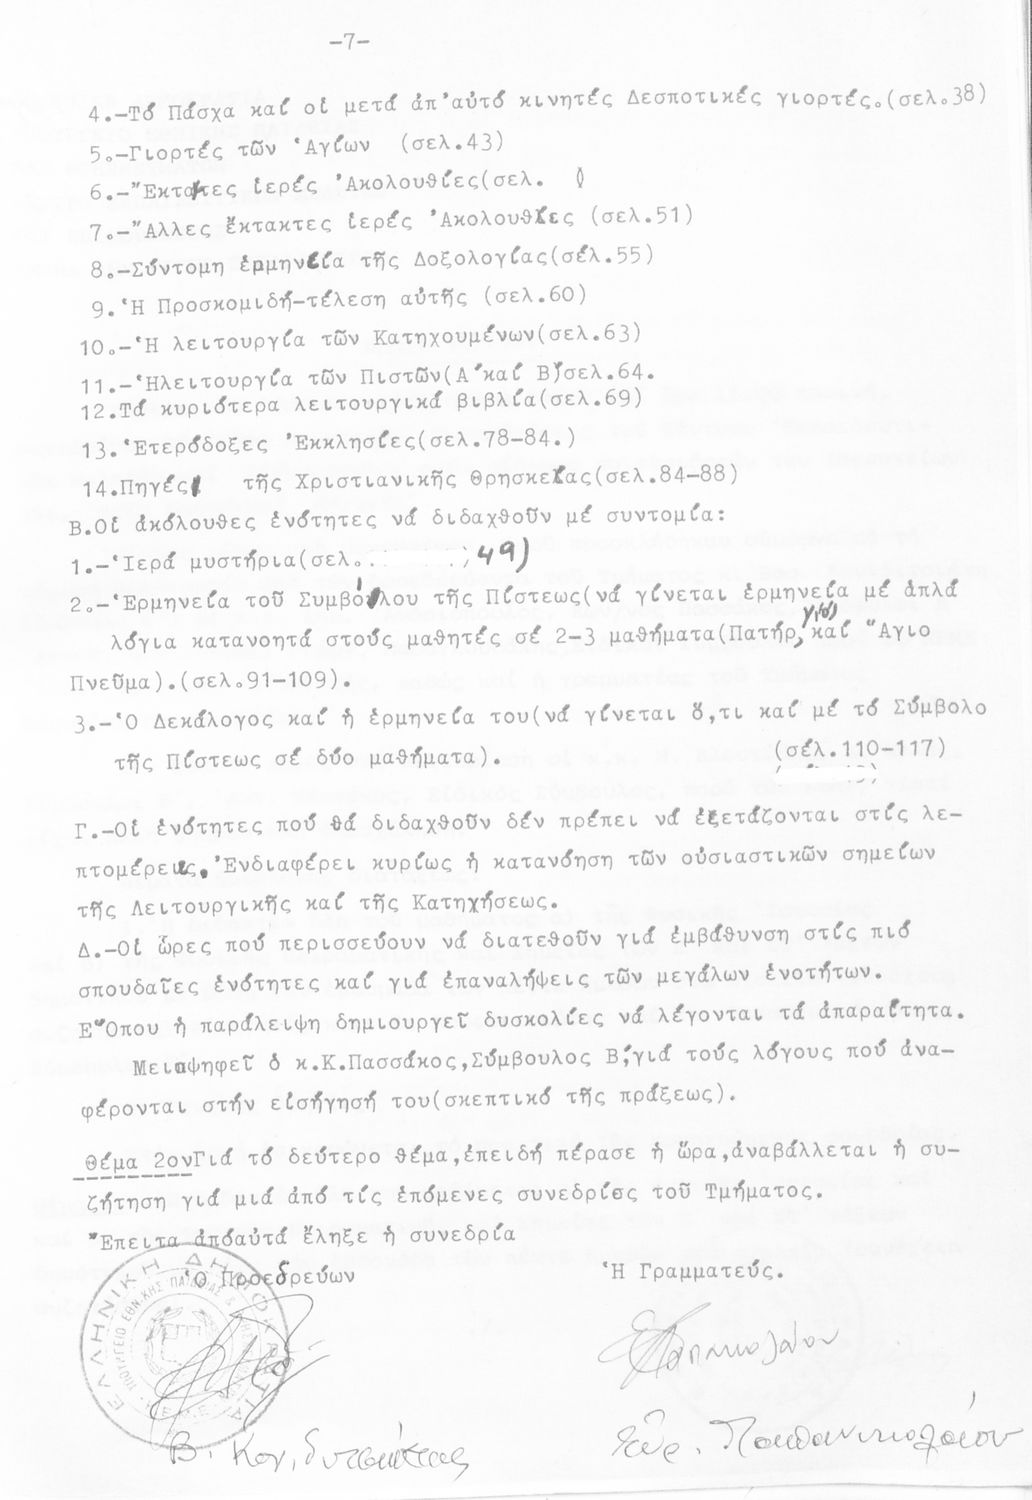 -7-
4.-Τό Πάσχα καί οἱ μετά ἀπ'αὐτό κινητές Δεσποτικές γιορτές.(σελ.38)
5.-Γιορτές τῶν Ἁγίων (σελ.43)
6.-Ἔκτακτες ἱερές Ἀκολουθίες(σελ.
7.-Ἄλλες ἔκτακτες ἱερές Ἀκολουθίες (σελ.51)
8.-Σύντομη ἑρμηνεία τῆς Δοξολογίας(σέλ.55)
9.Ἡ Προσκομιδή-τέλεση αὐτῆς (σελ.60)
10.-Ἡ λειτουργία τῶν Κατηχουμένων(σελ.63)
11.-Ἡλειτουργία τῶν Πιστῶν(Α΄καί Β΄)σελ.64.
12.Τά κυριότερα λειτουργικά βιβλία(σελ.69)
13.Ἑτερόδοξες Ἐκκλησίες(σελ.78-84.)
14.Πηγές τῆς Χριστιανικῆς Θρησκείας(σελ.84-88)
Β.Οἱ ἀκόλουθες ἑνότητες νά διδαχθοῦν μέ συντομία:
1.-Ἱερά μυστήρια(σελ. 49)
2.-Ἑρμηνεία τοῦ Συμβόλου τῆς Πίστεως(νά γίνεται ἑρμηνεία μέ ἁπλά
λόγια κατανοητά στούς μαθητές σέ 2-3 μαθήματα(Πατήρ, γιός καί Ἅγιο
Πνεῦμα).(σελ.91-109).
3.-Ὁ Δεκάλογος καί ἡ ἑρμηνεία του(νά γίνεται ὅ,τι καί μέ τό Σύμβολο
τῆς Πίστεως σέ δύο μαθήματα). (σέλ.110-117)
Γ.-Οἱ ἑνότητες πού θά διδαχθοῦν δέν πρέπει νά ἐξετάζονται στίς λε-
πτομέρειες. Ἐνδιαφέρει κυρίως ἡ κατανόηση τῶν οὐσιαστικῶν σημείων
τῆς Λειτουργικῆς καί τῆς Κατηχήσεως.
Δ.-Οἱ ὧρες πού περισσεύουν νά διατεθοῦν γιά ἐμβάθυνση στίς πιό
σπουδαῖες ἑνότητες καί γιά ἐπαναλήψεις τῶν μεγάλων ἑνοτήτων.
Ε"Οπου ἡ παράλειψη δημιουργεῖ δυσκολίες νά λέγονται τά ἀπαραίτητα.
Μειοψηφεῖ ὁ κ.Κ.Πασσάκος,Σύμβουλος Β΄,γιά τούς λόγους πού ἀνα-
φέρονται στήν εἰσήγησή του(σκεπτικό τῆς πράξεως).
Θέμα 2ονΓιά τό δεύτερο θέμα,ἐπειδή πέρασε ἡ ὥρα,ἀναβάλλεται ἡ συ-
ζήτηση γιά μιά ἀπό τίς ἑπόμενες συνεδρίες τοῦ Τμήματος.
Ἔπειτα ἀπόαὐτά ἔληξε ἡ συνεδρία
Ὁ Προεδρεύων Ἡ Γραμματεύς.
ΕΛΛΗΝΙΚΗ ΔΗΜΟΚΡΑΤΙΑ
ΥΠΟΥΡΓΕΙΟ ΕΘΝΙΚΗΣ ΠΑΙΔΕΙΑΣ &
Εὐρ. Παπανικολάου